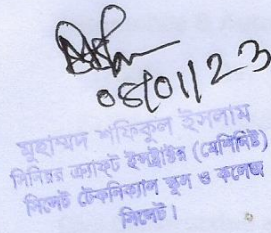 08/01/23
মুহাম্মদ শফিকুল ইসলাম
সিনিয়র ক্র্যাফট ইন্সট্রাক্টর (মেশিনিষ্ট)
সিলেট টেকনিক্যাল স্কুল ও কলেজ
সিলেট।